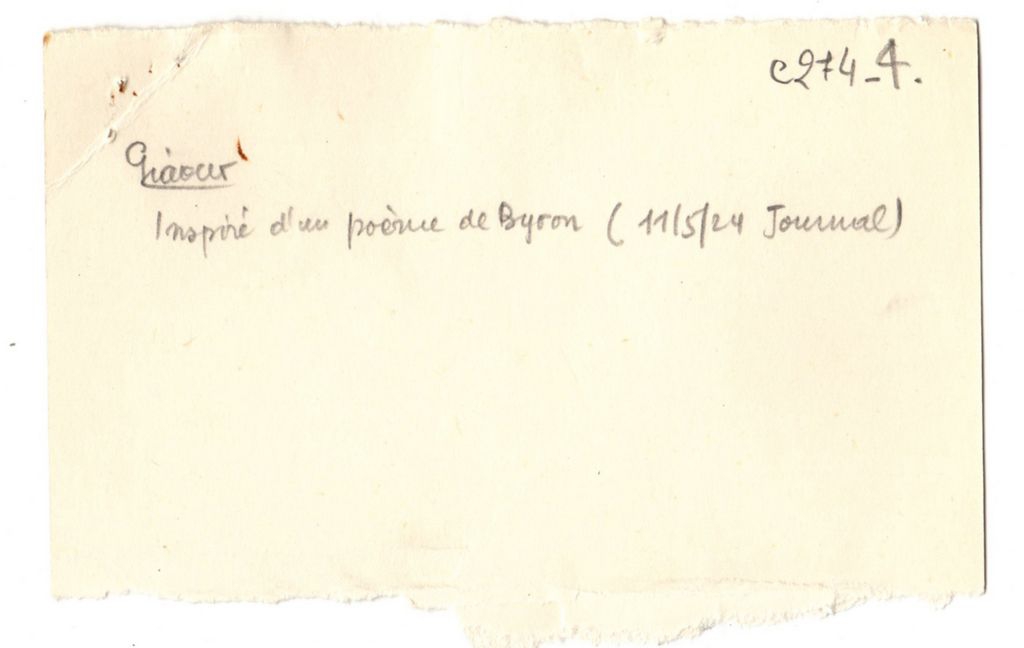 C274-4.
Giaour
Inspiré d'un poème de Byron (11/5/24 Journal)